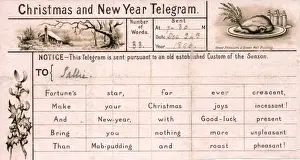 Christmas and New Year Telegram.
Number of Words.
33.
Sent
At
Dec 24th
NOTICE—This Telegram is sent pursuant to an old established Custom of the Season.
TO Sallie
Fortune's star, for ever crescent,
Make your Christmas joys incessant!
And New-year, with Good-luck present
Bring you nothing more unpleasant
Than Mob-pudding and roast pheasant!